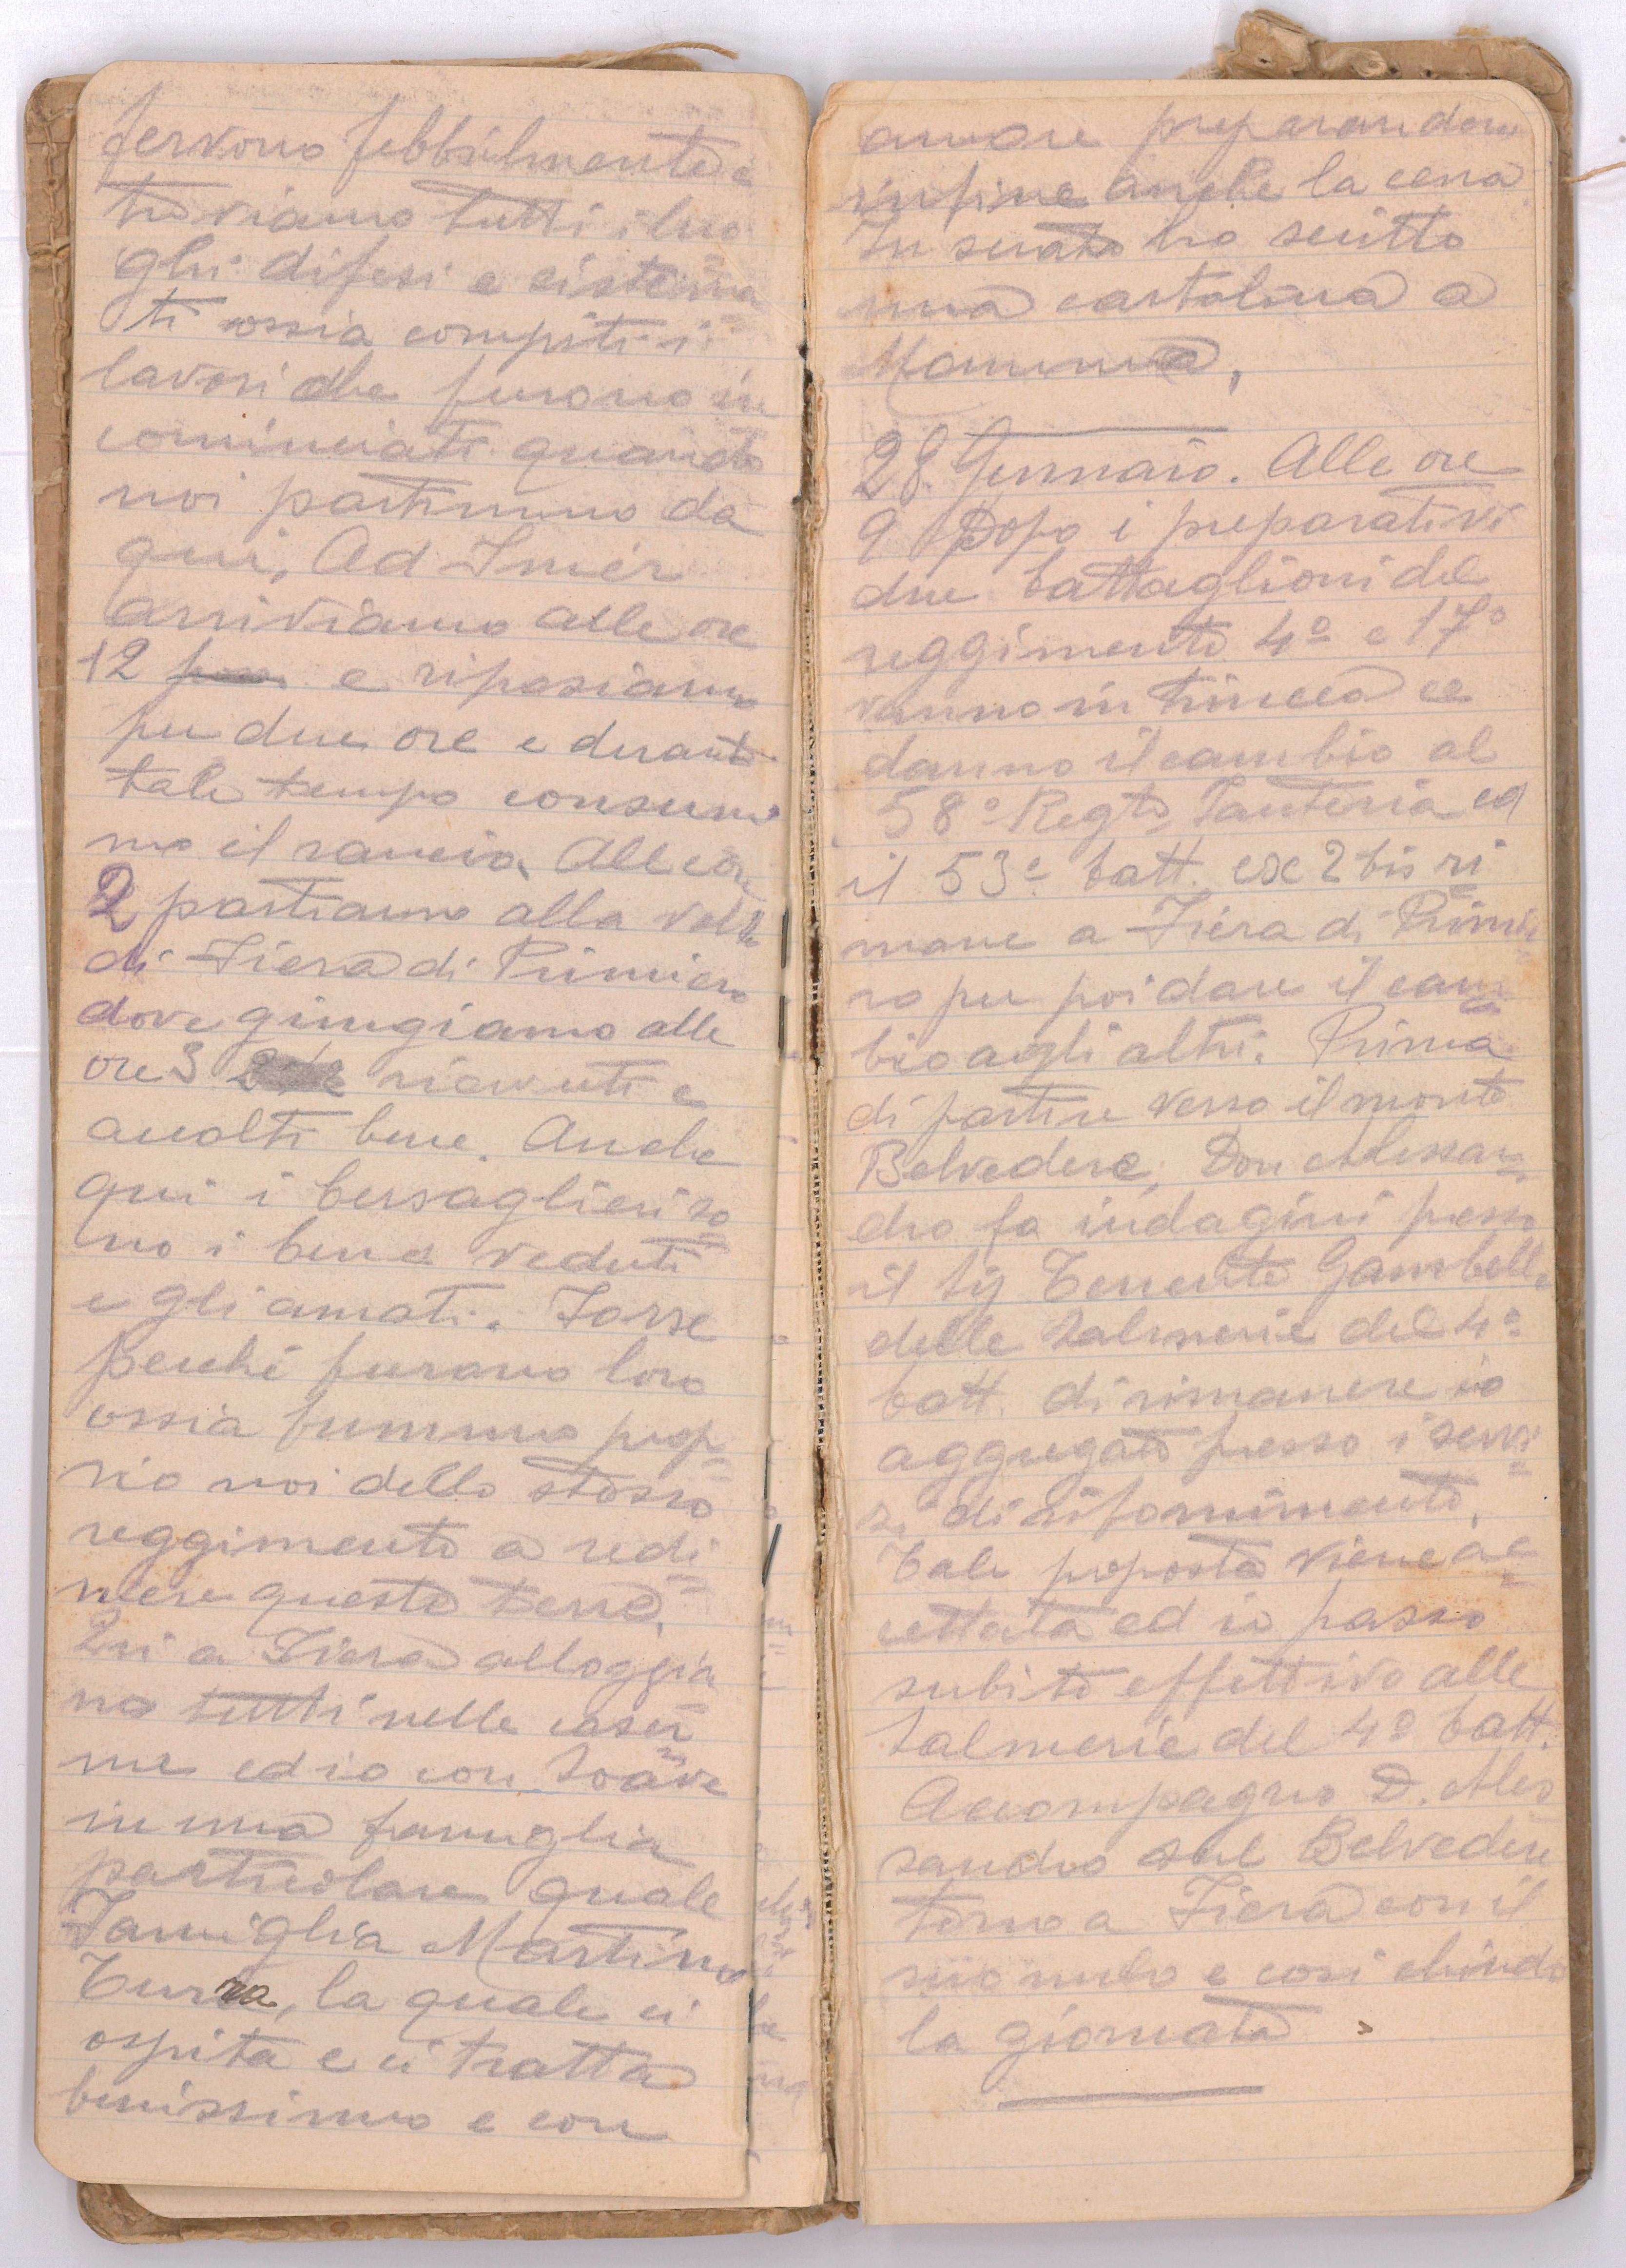 fervono febbrilmente e
troviamo tutti i luo
ghi difesi e sistema
ti ossia compiti i
lavori che furono in
cominciati quando
noi partimmo da
qui. Ad Imèr
arriviamo alle ore
12 e riposiamo
per due ore e durante
tale tempo consumia
mo il rancio. Alle ore
2 partiamo alla volta
di Fiera di Primiero
dove giungiamo alle
ore 3 ricevuti e
accolti bene. Anche
qui i bersaglieri so
no i bene veduti
e gli amati. Forse
perché furano loro
ossia fummo prop
rio noi dello stesso
reggimento a redi
mere queste terre.
Qui a Fiera alloggia
no tutti nelle caser
me ed io con Soave
in una famiglia
particolare quale
Famiglia Martino
Turra, la quale ci
ospita e ci tratta
benissimo e con
amore preparandoci
infine anche la cena
In serata ho scritto
una cartolina a
Mamma,
28 Gennaio. Alle ore
9 Dopo i preparativi
due battaglioni del
reggimento 4º e 17º
vanno in trincea e
danno il cambio al
58º Regto Fanteria ed
il 53º batt. ex 2 bis ri
mane a Fiera di Primie
ro per poi dare il cam
bio agli altri. Prima
di partire verso il monte
Belvedere, Don Alessan
dro fa indagini presso
il Sig Tenente Gambelli
delle Salmerie del 4º
batt. di rimanere io
aggregato presso i servi
zi di rifornimento.
Tale proposta viene ac
cettata ed io passo
subito effettivo alle
Salmerie del 4º batt.
Accompagno D. Ales
sandro sul Belvedere
torno a Fiera con il
suo mulo e cosi chiudo
la giornata